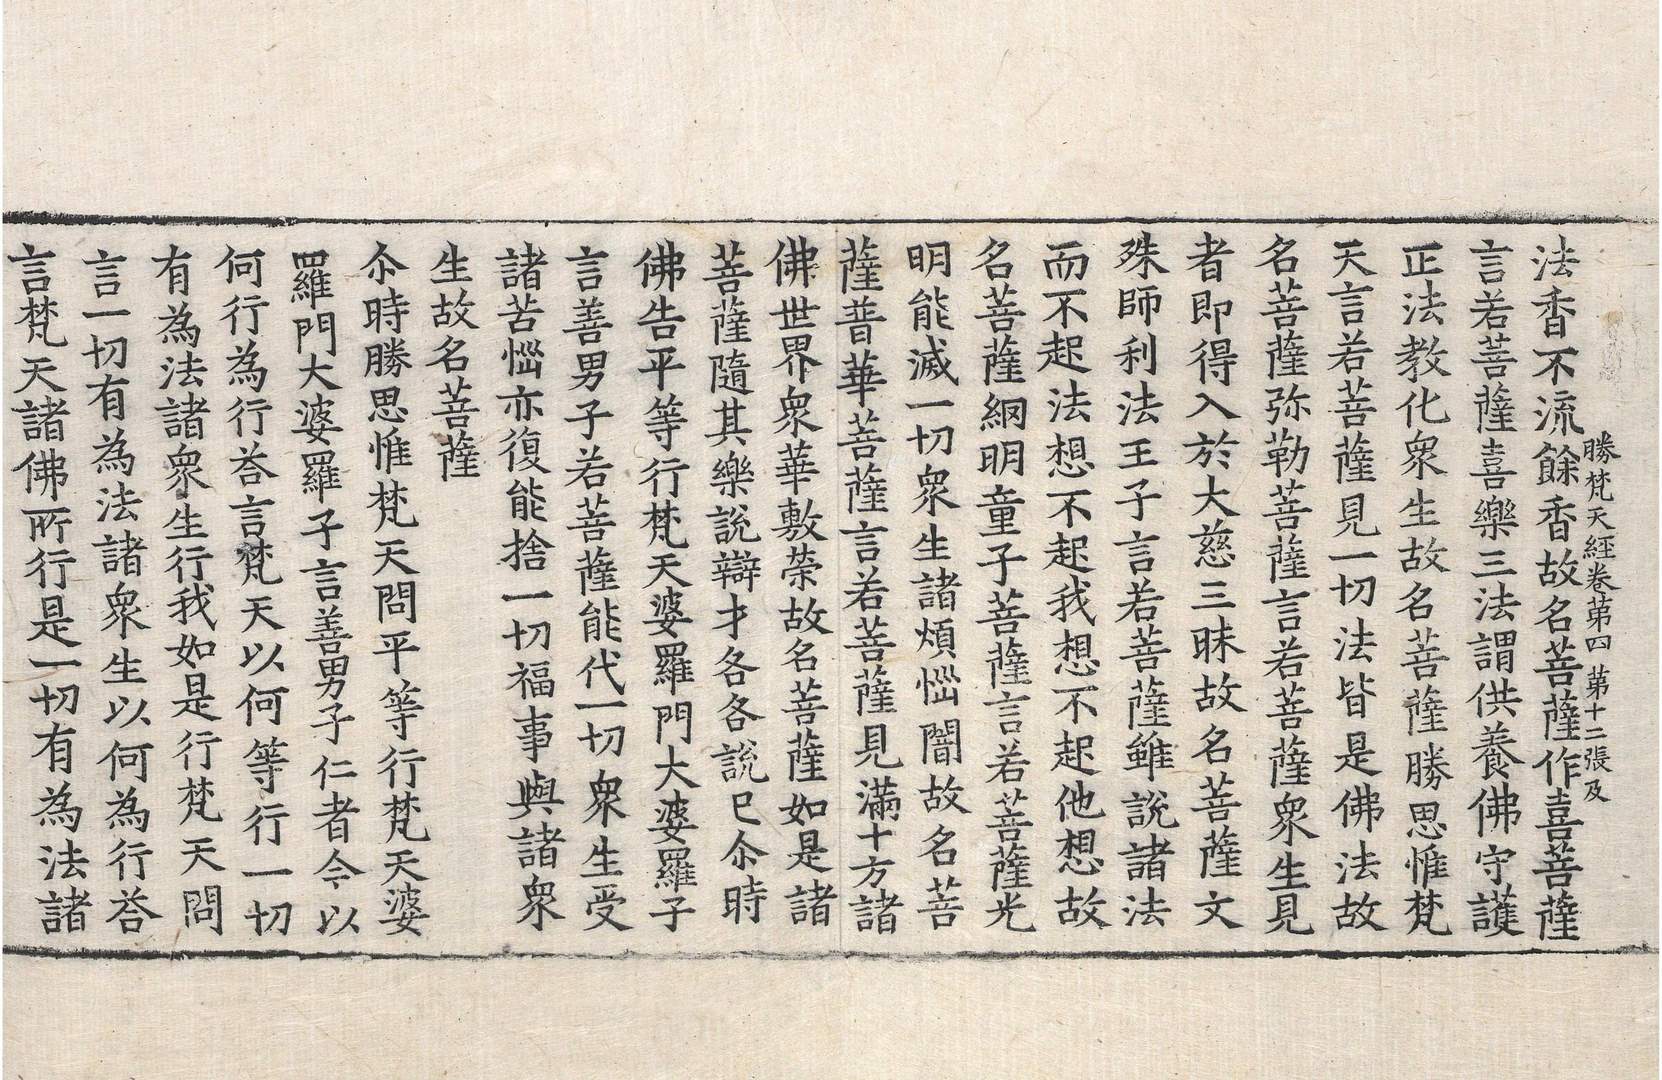 勝梵天経卷第四 第十二張及
法香不流餘香故名菩薩作喜菩薩
言若菩薩喜樂三法謂供養佛守護
正法教化衆生故名菩薩勝思惟梵
天言若菩薩見一切法皆是佛法故
名菩薩弥勒菩薩言若菩薩衆生見
者即得入於大慈三昧故名菩薩文
殊師利法王子言若菩薩雖說諸法
而不起法想不起我想不起他想故
名菩薩網明童子菩薩言若菩薩光
明能滅一切衆生諸煩惱闇故名菩
薩普華菩薩言若菩薩見滿十方諸
佛世界衆華敷榮故名菩薩如是諸
菩薩隨其樂說辯才各各說已尒時
佛告平等行梵天婆羅門大婆羅子
言善男子若菩薩能代一切衆生受
諸苦惱亦復能捨一切福事與諸衆
生故名菩薩
尒時勝思惟梵天問平等行梵天婆
羅門大婆羅子言善男子仁者今以
何行為行荅言梵天以何等行一切
有為法諸衆生行我如是行梵天問
言一切有為法諸衆生以何為行荅
言梵天諸佛所行是一切有為法諸